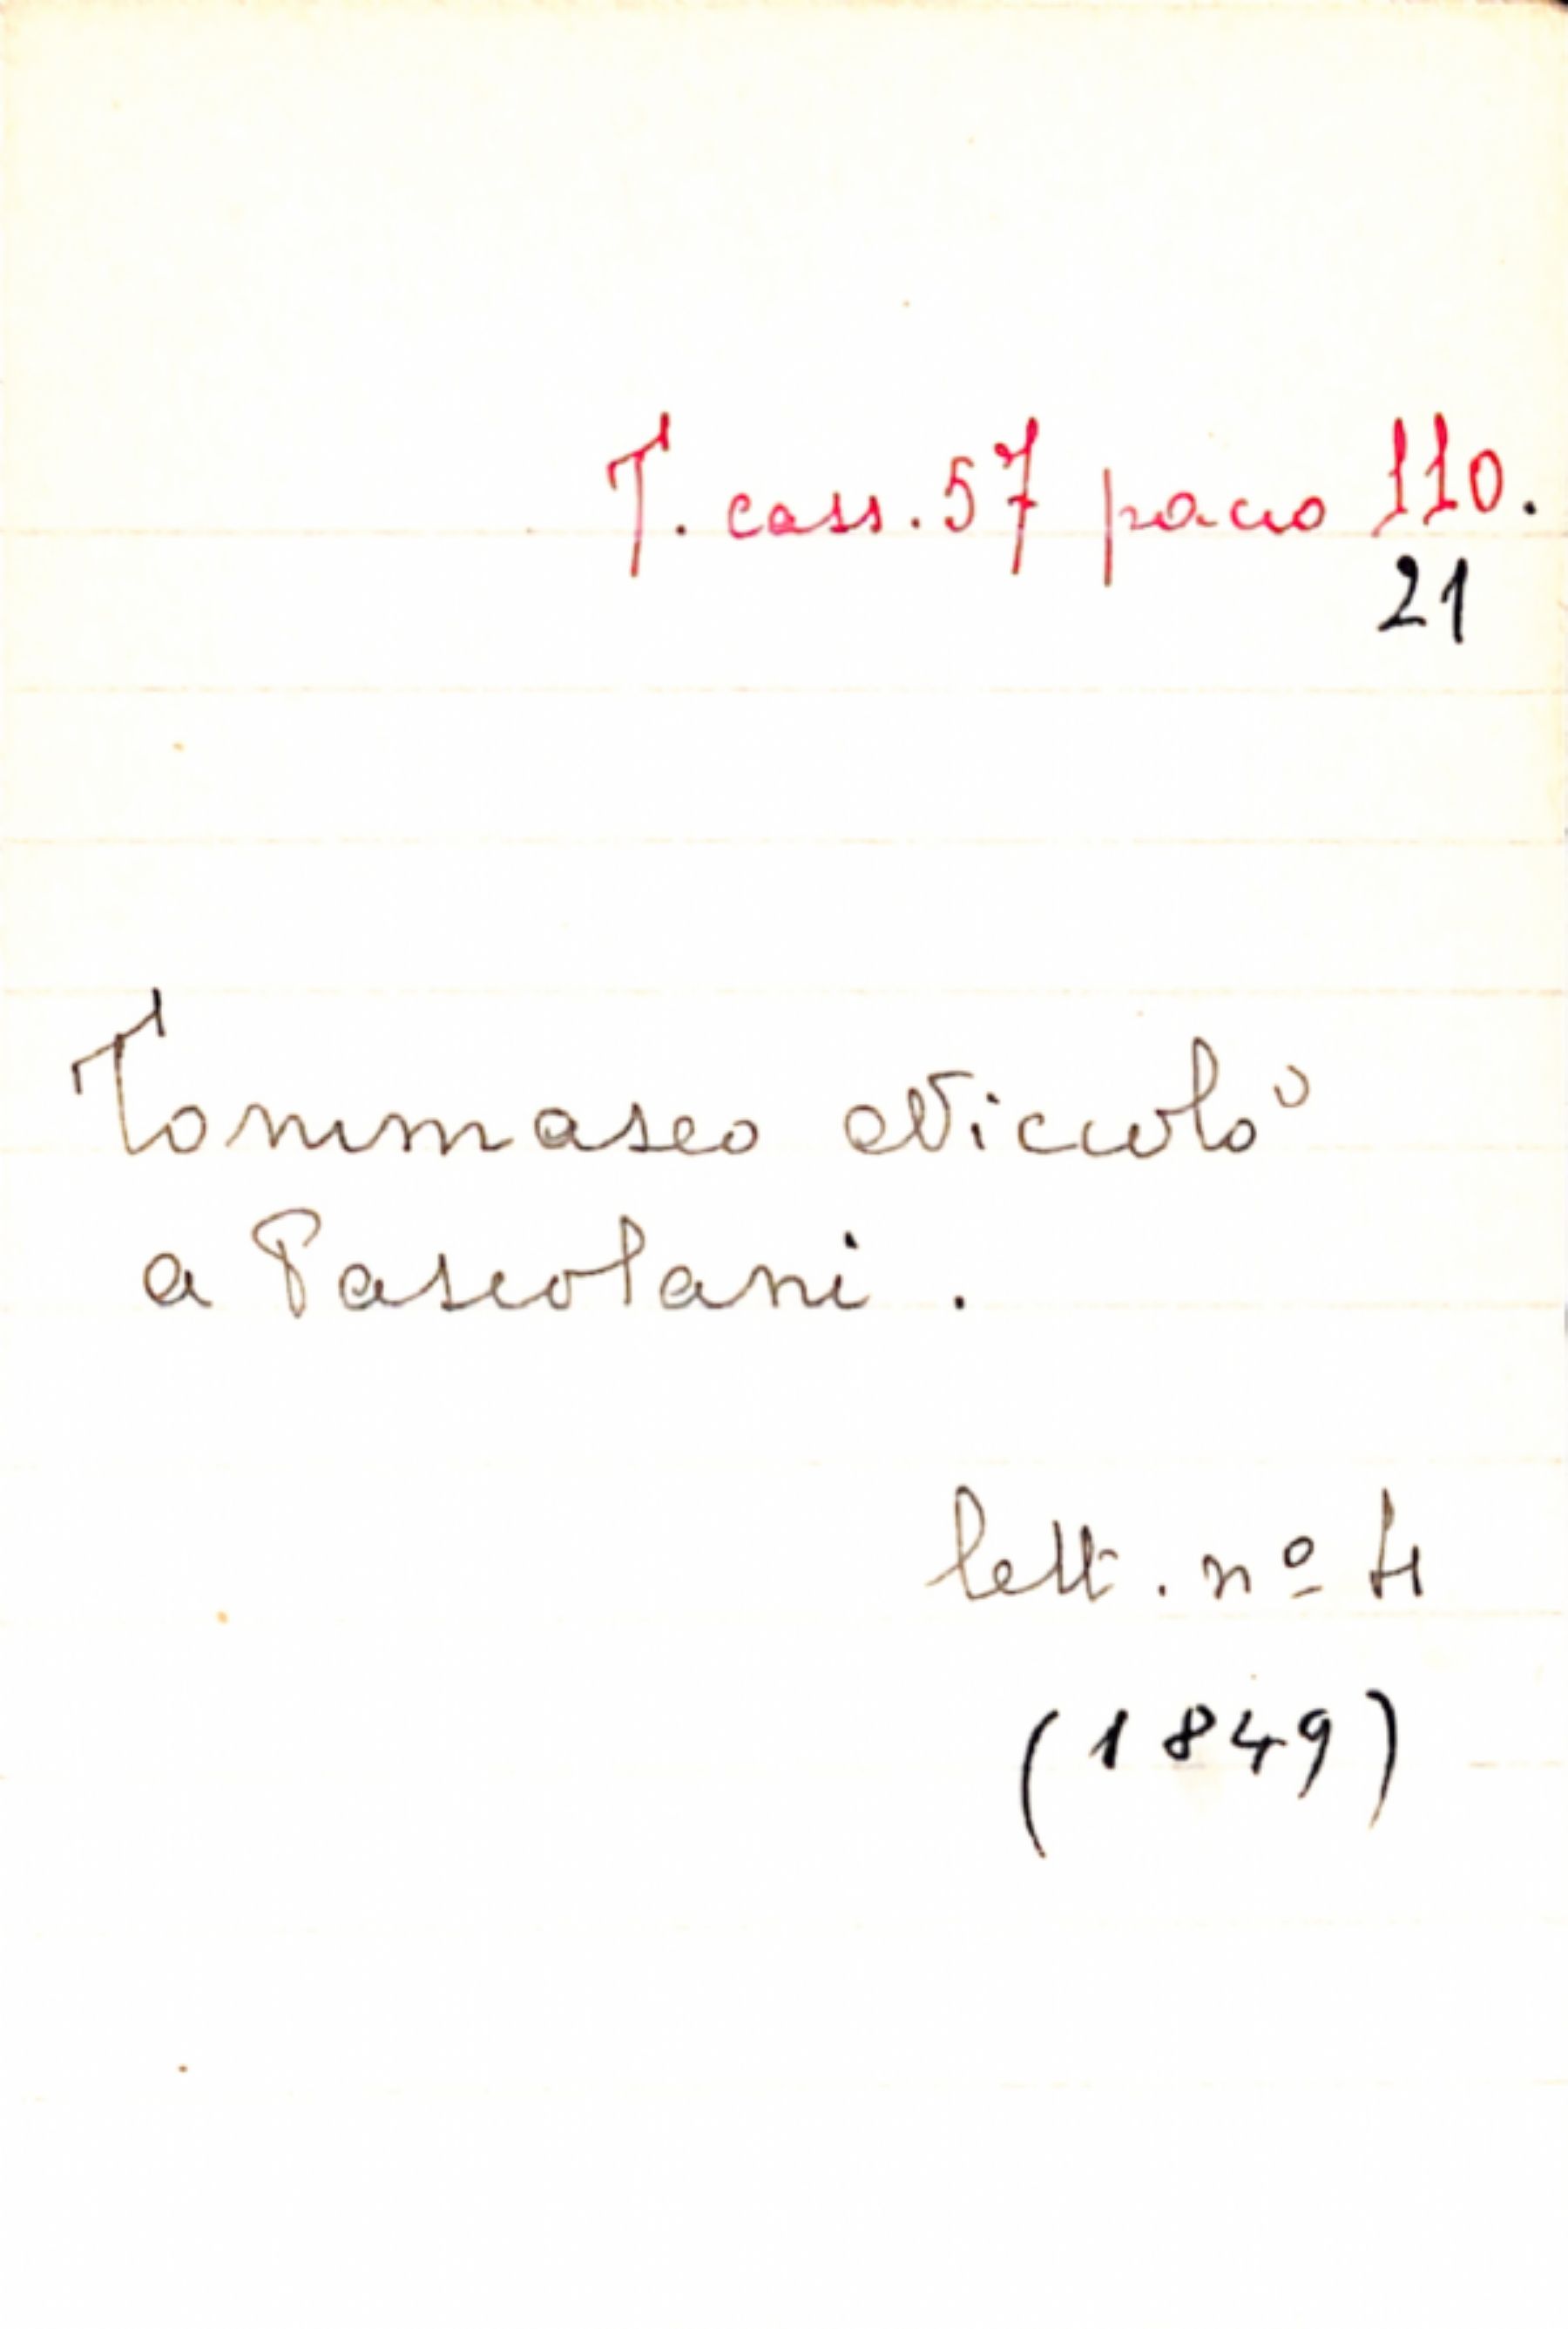 T. cass. 57 pacco 110.
21
Tommaseo Niccolò
a Pascolani.
lett. nº 4
(1849)